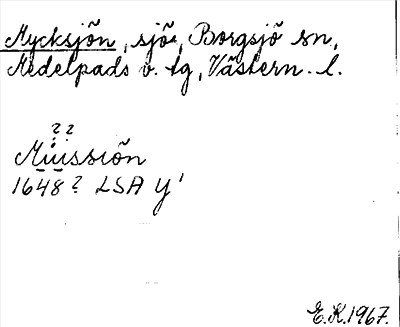 Mycksjön, sjö, Borgsjö sn,
Medelpads v. tg, Västern. l.
??
Müssiön
1648? LSA Y1
E.K. 1967.